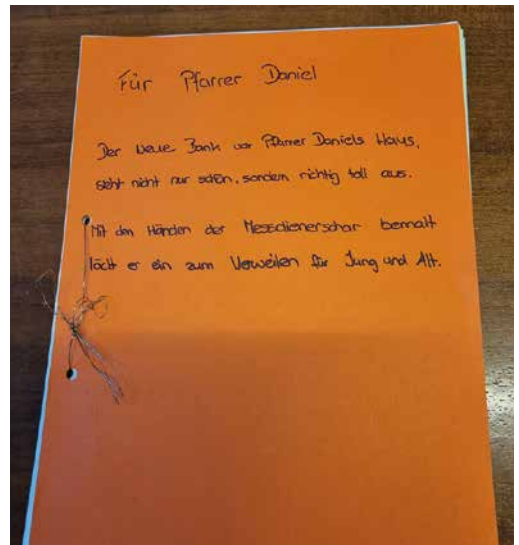 Für Pfarrer Daniel
Der Neue Bank vor Pfarrer Daniels Haus,
sieht nicht nur schön, sondern richtig toll aus.
Mit den Händen der Messdienerschar bemalt
lädt er ein zum Verweilen für Jung und Alt.